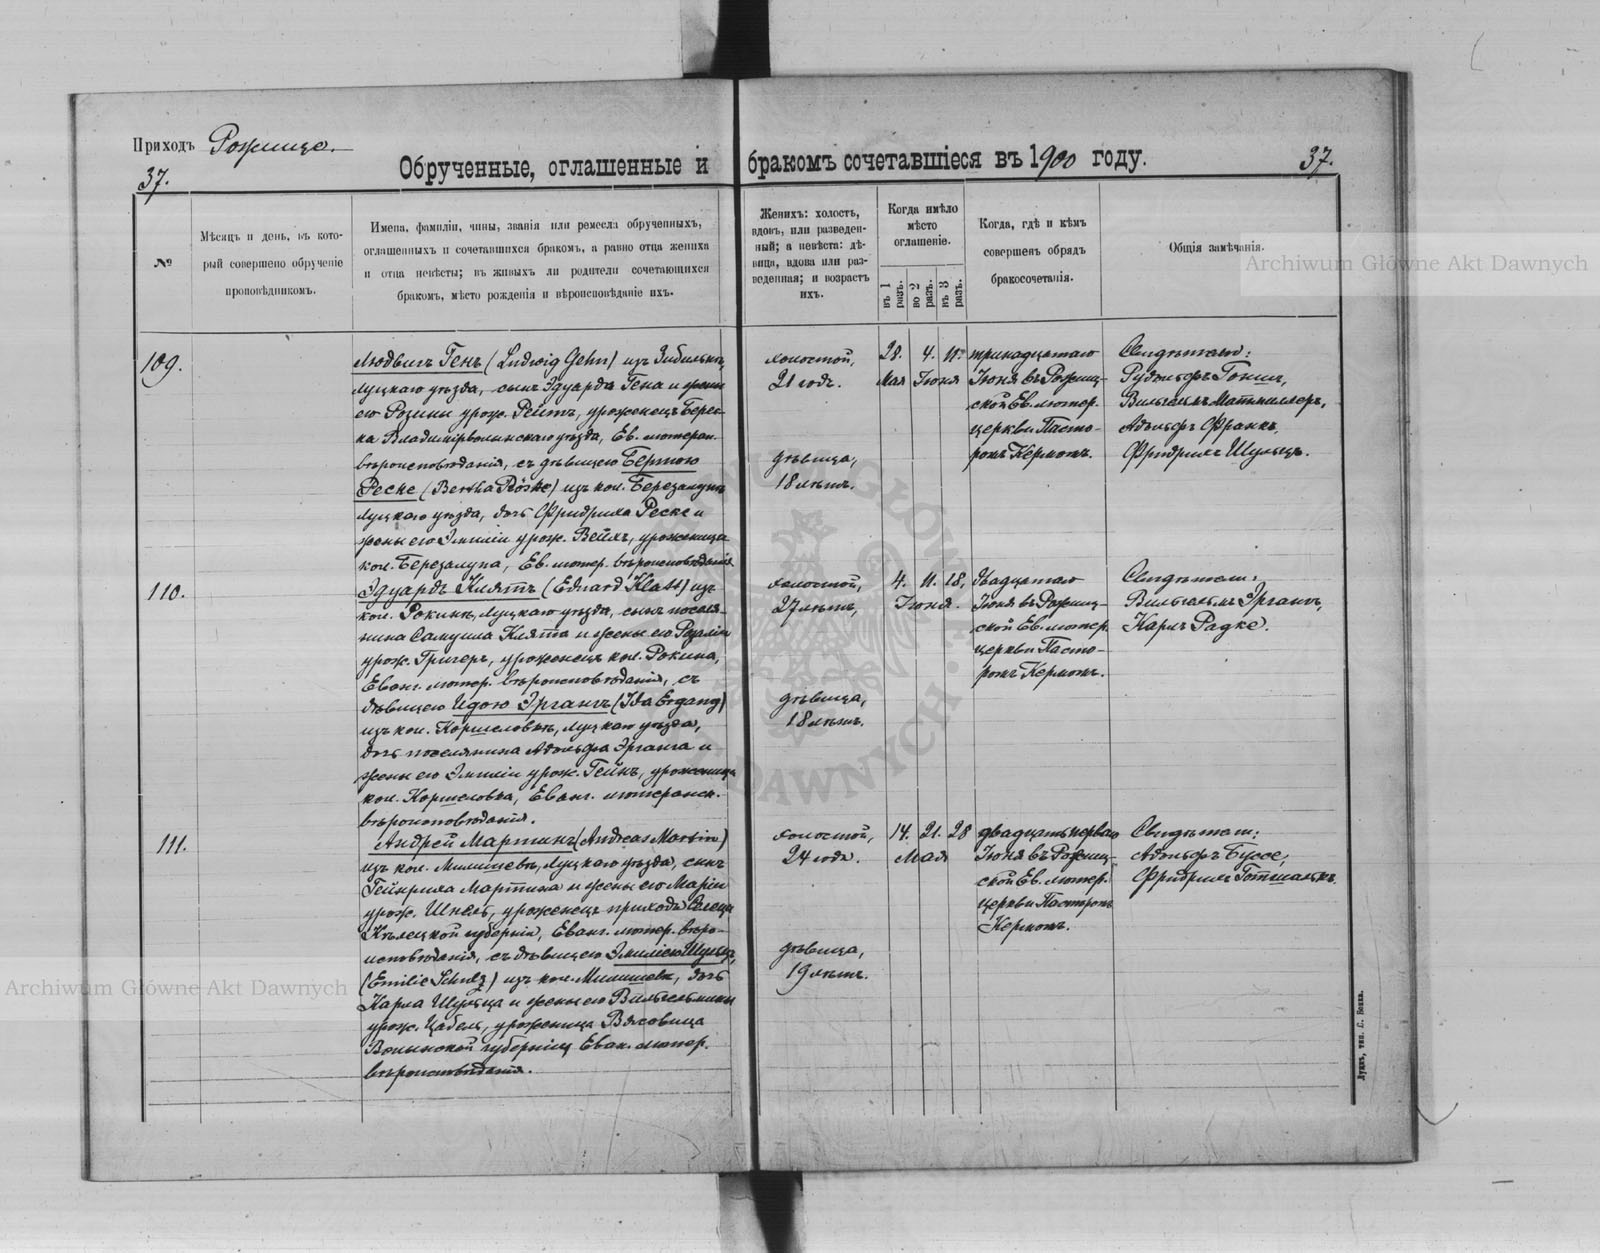 Приходъ Рожище.
37.
Обрученные, оглашенные и бракомъ сочетавшіеся въ 1900 году.
37.
№
Мѣсяцъ и день, въ кото-
рый совершено обрученіе
проповѣдникомъ.
Имена, фамиліи, чины, званія или ремесла обрученныхъ,
оглашенныхъ и сочетавшихся бракомъ, а равно отца жениха
и отца невѣсты; въ живыхъ ли родители сочетающихся
бракомъ, мѣсто рожденія и вѣроисповѣданіе ихъ.
Женихъ: холостъ,
вдовъ, или разведен-
ный; а невѣста: дѣ-
вица, вдова или раз-
веденная; и возрастъ
ихъ.
Когда имѣло
мѣсто
оглашеніе.
въ 1 разъ.
во 2 разъ.
въ 3 разъ.
Когда, гдѣ и кѣмъ
совершенъ обрядъ
бракосочетанія.
Общія замѣчанія.
Archiwum Główne Akt Dawnych
109.
Людвигъ Генъ (Ludwig Gehn) изъ
Луцкаго уѣзда, сынъ Эдуарда Гена и жены
его Розины урож. Рейтъ, уроженецъ Берез-
ка Владимірволынскаго уѣзда, Ев. лютеран.
вѣроисповѣданія, съ дѣвицею Бертою
Реске (Bertha Röske) изъ кол. Березалупъ
Луцкаго уѣзда, дочь Фридриха Реске и
жены его Эмиліи урож. Вейхъ, уроженица
кол. Березалупа, Ев. лютер. вѣроисповѣданія
холостой,
21 годъ.
дѣвица,
18 лѣтъ.
28. 4. 11.
Мая Іюня
тринадцатаго
Іюня въ Рожищ-
ской Ев. лютер.
церкви Пасто-
ромъ Кермомъ.
Свидѣтели:
Рудольфъ Гоним,
Вильгельмъ Матмиллеръ,
Адольфъ Франкъ,
Фридрихъ Шульцъ.
110.
Эдуардъ Клятъ (Eduard Klatt) изъ
кол. Рокинъ, Луцкаго уѣзда, сынъ поселя-
нина Самуила Клята и жены его Розаліи
урож. Григеръ, уроженецъ кол. Рокина,
Еванг. лютер. вѣроисповѣданія, съ
дѣвицею Идою Эргангъ (Ida Ergang)
изъ кол. Коршеловкъ, Луцкаго уѣзда,
дочь поселянина Адольфа Эрганга и
жены его Эмиліи урож. Гейнъ, уроженица
кол. Коршеловка, Еванг. лютеранск.
вѣроисповѣданія.
холостой,
27 лѣтъ,
дѣвица,
18 лѣтъ.
4. 11. 18.
Іюня.
двадцатаго
Іюня въ Рожищ-
ской Ев. лютер.
церкви Пасто-
ромъ Кермомъ.
Свидѣтели:
Вильгельмъ Эргангъ,
Карлъ Радке.
111.
Андрей Мартинъ (Andreas Martin)
изъ кол. Милишевъ, Луцкаго уѣзда, сынъ
Гейнриха Мартина и жены его Маріи
урож. Шнель, уроженецъ прихода
Кѣлецкой губерніи, Еванг. лютер. вѣро-
исповѣданія, съ дѣвицею Эмиліею Шульцъ,
(Emilie Schulz) изъ кол. Милишевъ, дочь
Карла Шульца и жены его Вильгельмины
урож. Цабель, уроженица Вязовица
Волынской губерніи, Еван. лютер.
вѣроисповѣданія.
холостой,
24 года.
дѣвица,
19 лѣтъ.
14. 21. 28
Мая
двадцать перваго
Іюня въ Рожищ-
ской Ев. лютер.
церкви Пасторомъ
Кермомъ.
Свидѣтели:
Адольфъ Буссе,
Фридрихъ Готшалькъ.
Archiwum Główne Akt Dawnych
Луцкъ, тип. С. Бокса.
GŁÓWNE
DAWNYCH